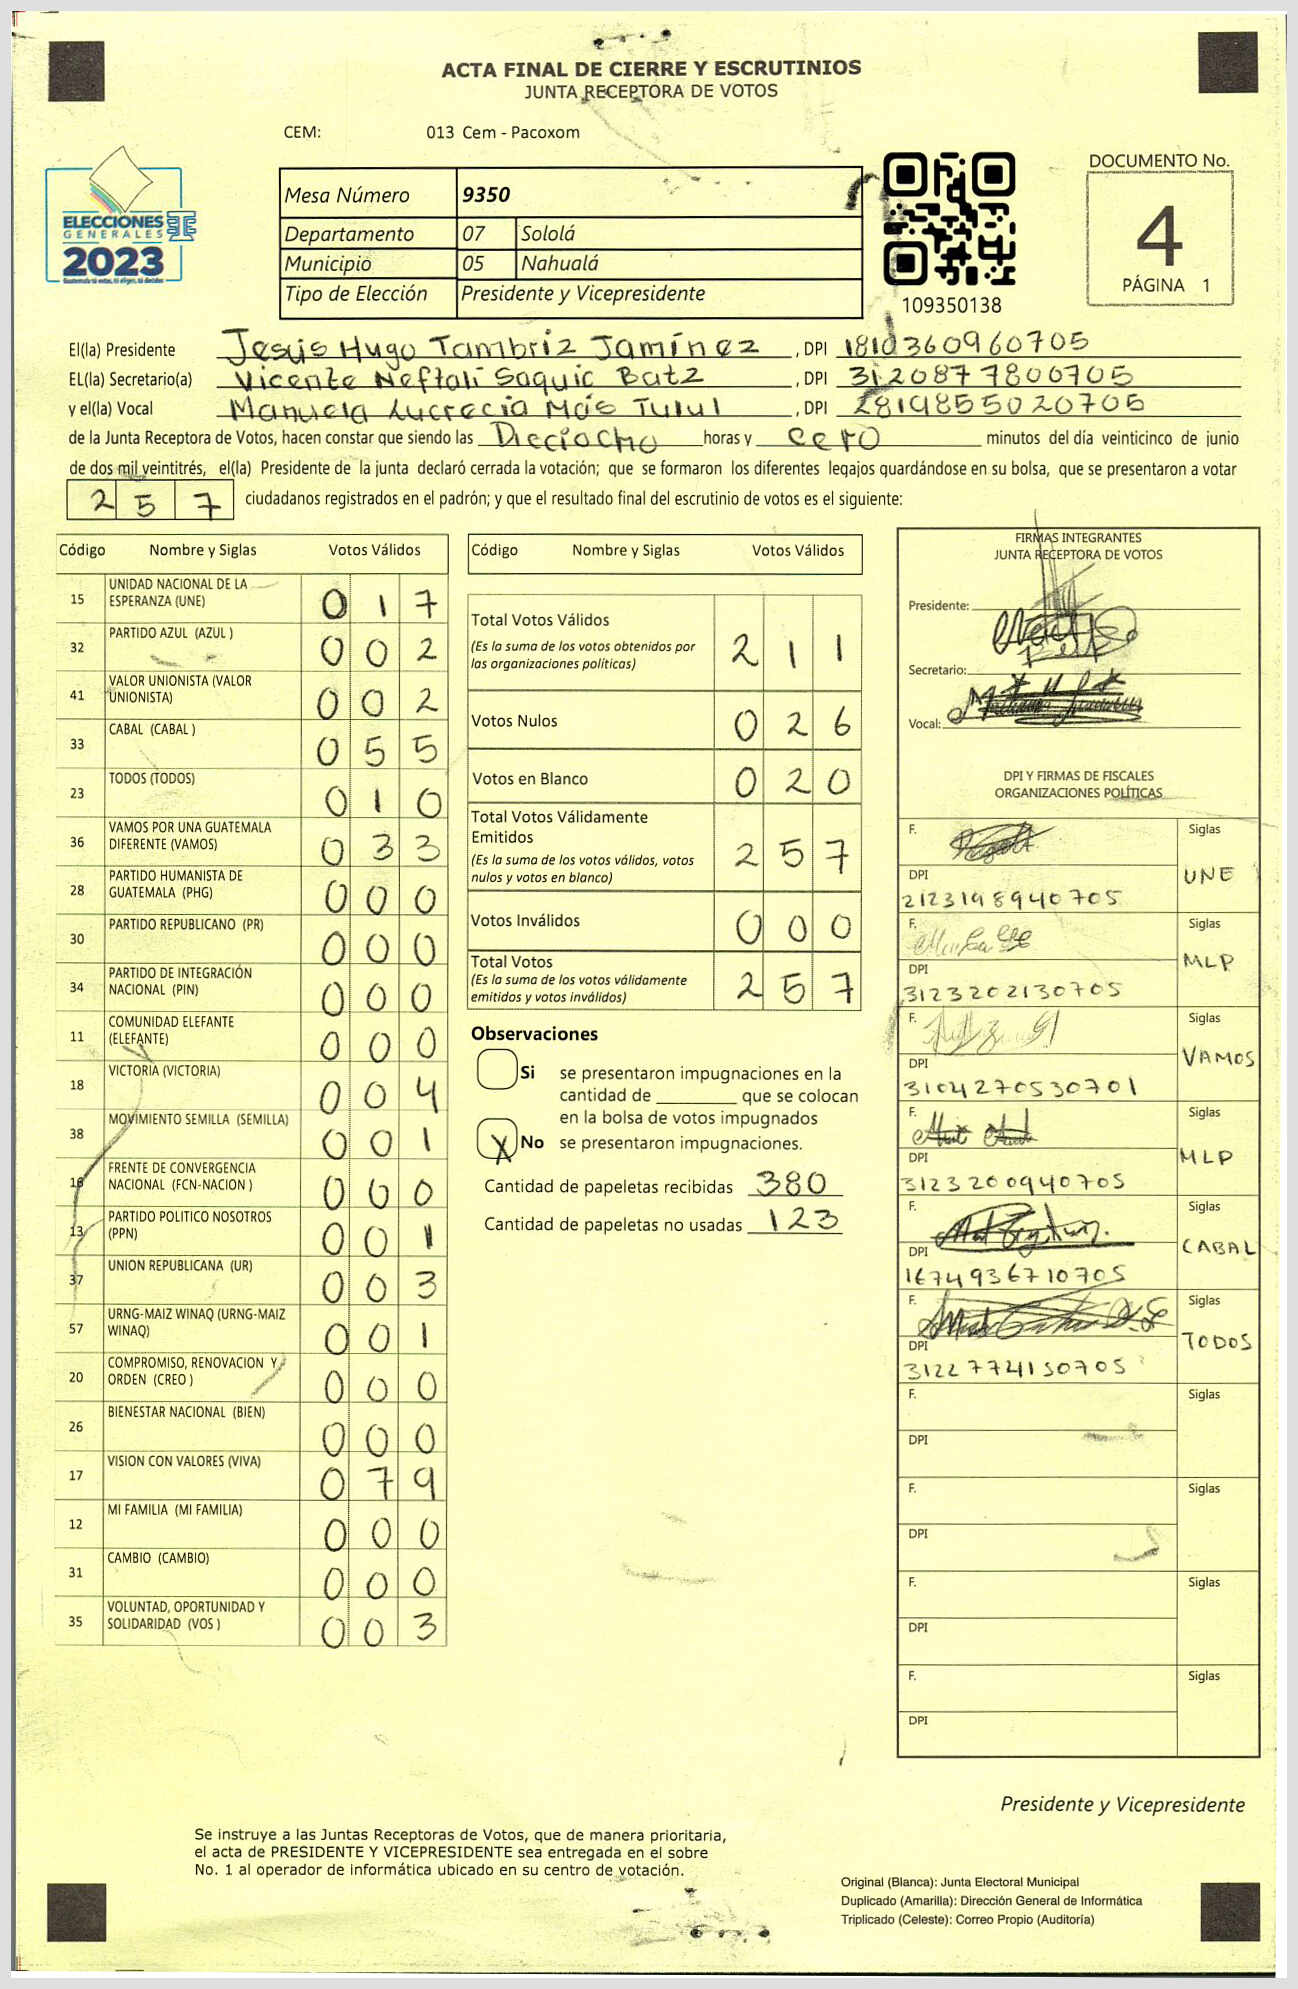 ACTA FINAL DE CIERRE Y ESCRUTINIOS
JUNTA RECEPTORA DE VOTOS
CEM: 013 Cem - Pacoxom
ELECCIONES
GENERALES
2023
Mesa Número 9350
Departamento 07 Sololá
Municipio 05 Nahualá
Tipo de Elección Presidente y Vicepresidente
109350138
DOCUMENTO No.
4
PÁGINA 1
El(la) Presidente Jesús Hugo Tambriz Jamínez, DPI 1810360960705
EL(la) Secretario(a) Vicente Neftalí Saquic Batz, DPI 3120877800705
y el(la) Vocal Manuela Lucrecia Más Tulul, DPI 2819855020705
de la Junta Receptora de Votos, hacen constar que siendo las Dieciocho horas y cero minutos del día veinticinco de junio
de dos mil veintitrés, el(la) Presidente de la junta declaró cerrada la votación; que se formaron los diferentes legajos guardándose en su bolsa, que se presentaron a votar
257 ciudadanos registrados en el padrón; y que el resultado final del escrutinio de votos es el siguiente:
Código Nombre y Siglas Votos Válidos
15 UNIDAD NACIONAL DE LA ESPERANZA (UNE) 017
32 PARTIDO AZUL (AZUL ) 002
41 VALOR UNIONISTA (VALOR UNIONISTA) 002
33 CABAL (CABAL ) 055
23 TODOS (TODOS) 010
36 VAMOS POR UNA GUATEMALA DIFERENTE (VAMOS) 033
28 PARTIDO HUMANISTA DE GUATEMALA (PHG) 000
30 PARTIDO REPUBLICANO (PR) 000
34 PARTIDO DE INTEGRACIÓN NACIONAL (PIN) 000
11 COMUNIDAD ELEFANTE (ELEFANTE) 000
18 VICTORIA (VICTORIA) 004
38 MOVIMIENTO SEMILLA (SEMILLA) 001
16 FRENTE DE CONVERGENCIA NACIONAL (FCN-NACION ) 000
13 PARTIDO POLITICO NOSOTROS (PPN) 001
37 UNION REPUBLICANA (UR) 003
57 URNG-MAIZ WINAQ (URNG-MAIZ WINAQ) 001
20 COMPROMISO, RENOVACION Y ORDEN (CREO ) 000
26 BIENESTAR NACIONAL (BIEN) 000
17 VISION CON VALORES (VIVA) 079
12 MI FAMILIA (MI FAMILIA) 000
31 CAMBIO (CAMBIO) 000
35 VOLUNTAD, OPORTUNIDAD Y SOLIDARIDAD (VOS ) 003
Código Nombre y Siglas Votos Válidos
Total Votos Válidos 211
(Es la suma de los votos obtenidos por
las organizaciones políticas)
Votos Nulos 026
Votos en Blanco 020
Total Votos Válidamente
Emitidos 257
(Es la suma de los votos válidos, votos
nulos y votos en blanco)
Votos Inválidos 000
Total Votos 257
(Es la suma de los votos válidamente
emitidos y votos inválidos)
Observaciones
Si se presentaron impugnaciones en la
cantidad de ________ que se colocan
en la bolsa de votos impugnados
X No se presentaron impugnaciones.
Cantidad de papeletas recibidas 380
Cantidad de papeletas no usadas 123
FIRMAS INTEGRANTES
JUNTA RECEPTORA DE VOTOS
Presidente:
Secretario:
Vocal:
DPI Y FIRMAS DE FISCALES
ORGANIZACIONES POLÍTICAS
F. Siglas UNE
DPI 2123198940705
F. Siglas MLP
DPI 3123202130705
F. Siglas VAMOS
DPI 3104270530701
F. Siglas MLP
DPI 3123200940705
F. Siglas CABAL
DPI 1674936710705
F. Siglas TODOS
DPI 3122774130705
F. Siglas
DPI
F. Siglas
DPI
F. Siglas
DPI
F. Siglas
DPI
Presidente y Vicepresidente
Se instruye a las Juntas Receptoras de Votos, que de manera prioritaria,
el acta de PRESIDENTE Y VICEPRESIDENTE sea entregada en el sobre
No. 1 al operador de informática ubicado en su centro de votación.
Original (Blanca): Junta Electoral Municipal
Duplicado (Amarilla): Dirección General de Informática
Triplicado (Celeste): Correo Propio (Auditoría)